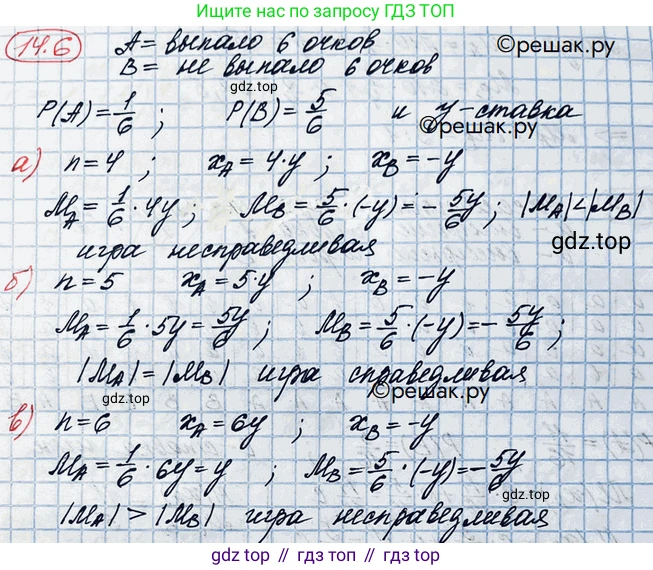 Ищите нас по запросу ГДЗ ТОП
14.6 A = выпало 6 очков ©решак.ру
B = не выпало 6 очков
gdz.top
P(A)=1/6; P(B)=5/6 и y-ставка
©решак.ру
а) n=4; x_A=4·y; x_B=-y
M_A=1/6·4y; M_B=5/6·(-y)=-5y/6; |M_A|<|M_B|
игра несправедливая gdz.top
б) n=5 x_A=5·y; x_B=-y
M_A=1/6·5y=5y/6; M_B=5/6·(-y)=-5y/6;
|M_A|=|M_B| игра справедливая
©решак.ру
gdz.top
в) n=6 x_A=6y; x_B=-y
M_A=1/6·6y=y; M_B=5/6·(-y)=-5y/6
gdz.top
|M_A|>|M_B| игра несправедливая
©решак.ру
gdz top // гдз топ // gdz.top